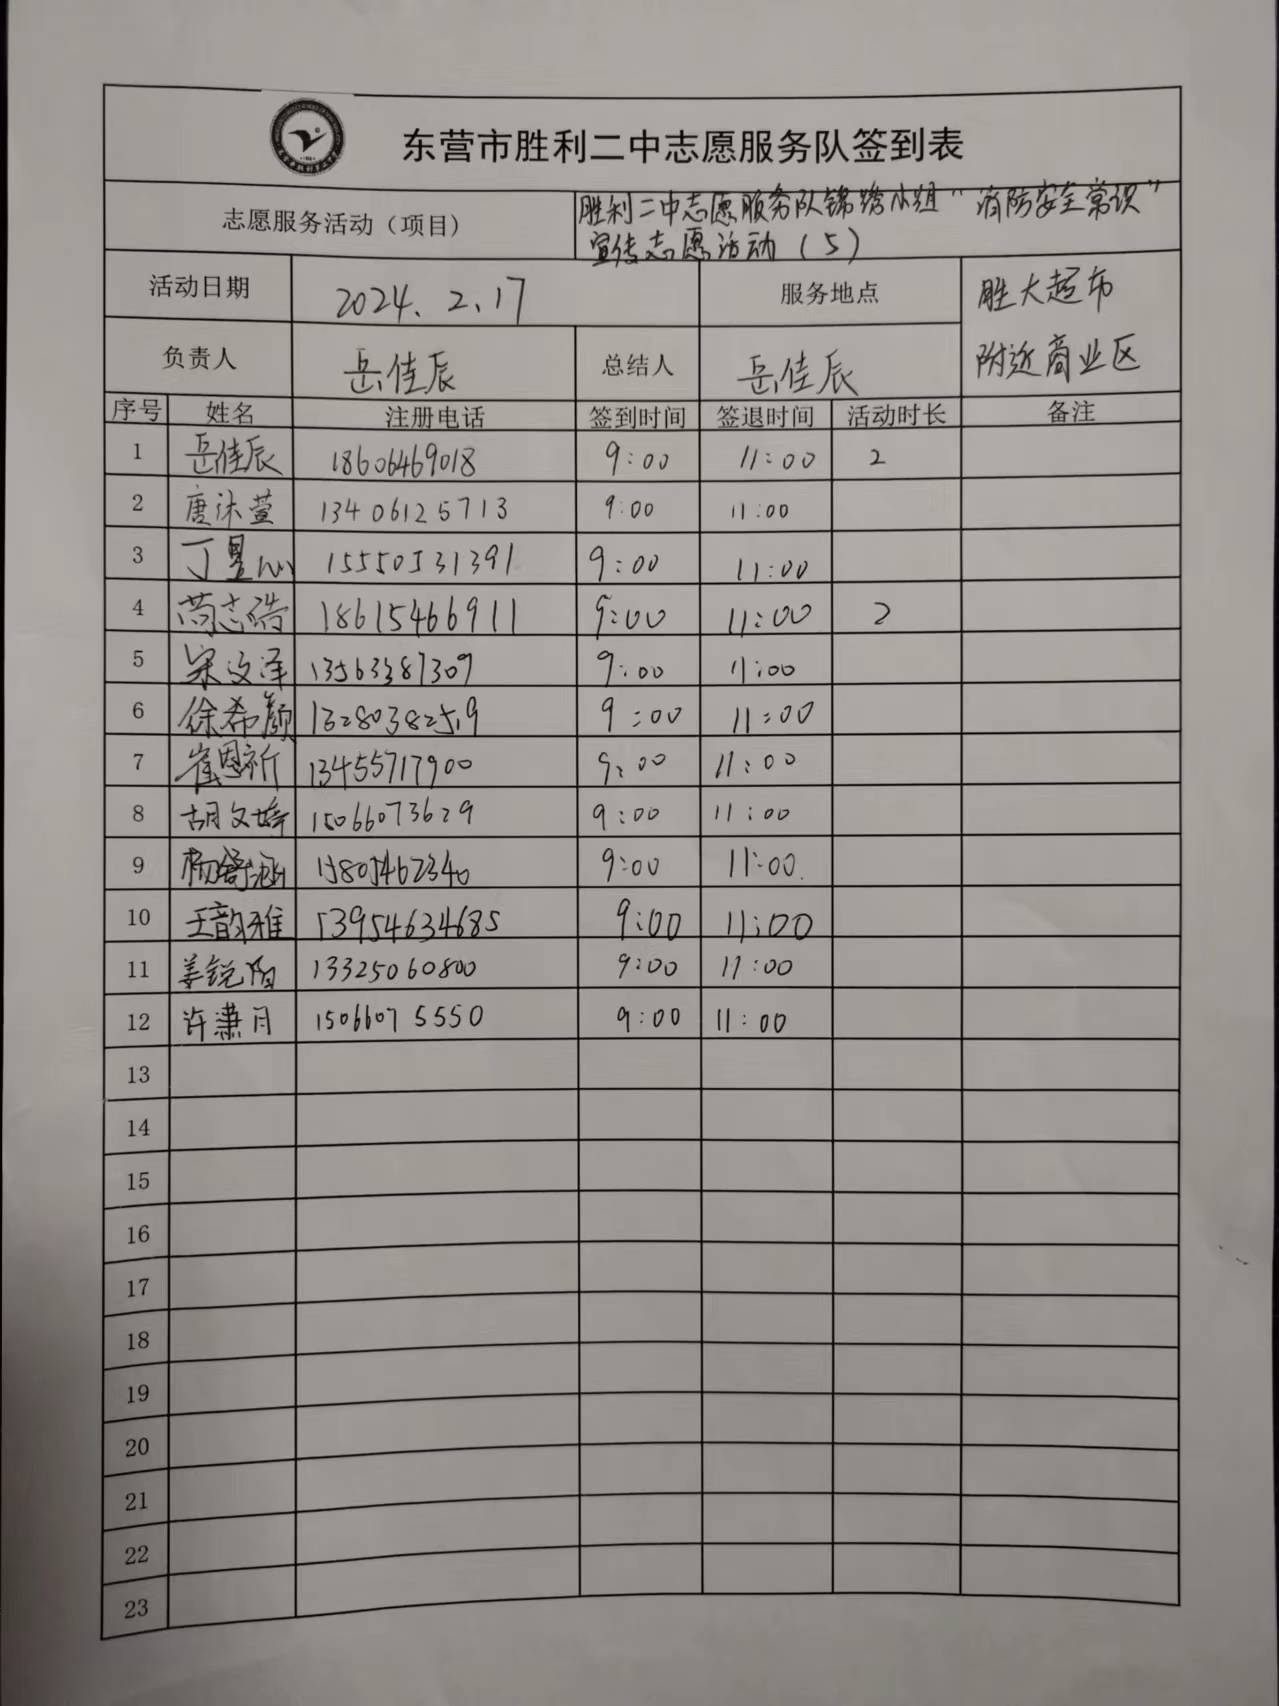 东营市胜利二中志愿服务队签到表
志愿服务活动（项目） 胜利二中志愿服务队锦绣小组“消防安全常识”
宣传志愿活动（5）
活动日期 2024.2.17 服务地点 胜大超市
附近商业区
负责人 岳佳辰 总结人 岳佳辰
序号 姓名 注册电话 签到时间 签退时间 活动时长 备注
1 岳佳辰 18606469018 9:00 11:00 2
2 唐沐萱 13406125713 9:00 11:00
3 丁昱心 15550531391 9:00 11:00
4 尚志浩 18615466911 9:00 11:00 2
5 宋汶泽 13563387309 9:00 11:00
6 徐希颜 13280382519 9:00 11:00
7 崔恩祈 13455717900 9:00 11:00
8 胡文婷 15066073629 9:00 11:00
9 杨舒涵 15805462340 9:00 11:00
10 王韵雅 13954634685 9:00 11:00
11 姜锐阳 13325060800 9:00 11:00
12 许潇月 15066075550 9:00 11:00
13
14
15
16
17
18
19
20
21
22
23